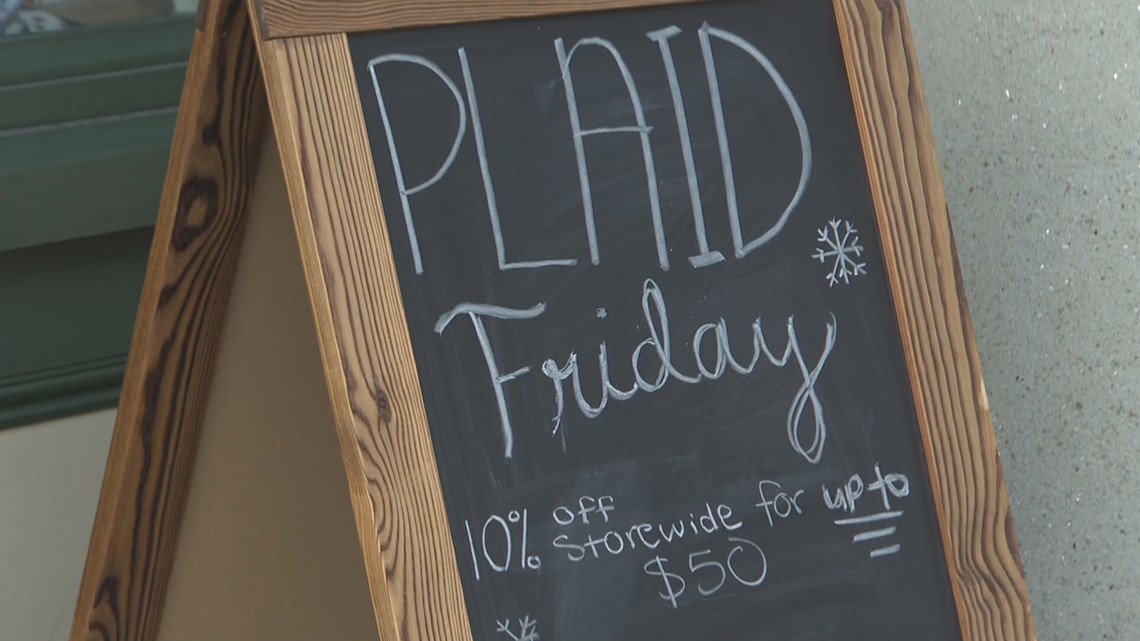 PLAID
Friday
10% off
storewide for up to
$50